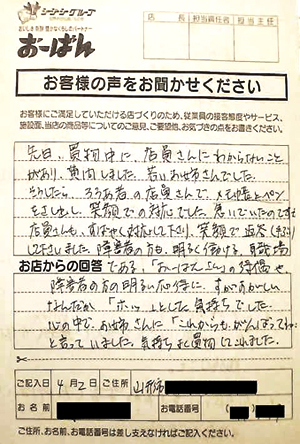 シーシーグループ
おーばん
店長
担当責任者
担当主任
お客様の声をお聞かせください
お客様にご満足していただける店づくりのため、従業員の接客態度やサービス、
施設面、当店の商品等についてのご意見、ご要望他、お気づきの点をお書きください。
先日、買物中に、店員さんにわからないこと
があり、質問しました。若いお姉さんでした。
そうしたら、ろうあ者の店員さんで、メモ帳とペン
をさし出し、笑顔での対応でした。急いでいたのですが
店員さんも、すばやく対応して下さり、笑顔で返答(手ぶり)
して下さいました。障害者の方も、明るく働ける、職場
お店からの回答
である、「おーばんさん」の待遇や
障害者の方の明るい応待に、すがすがしい
なんだか「ホッ」とした気持ちでした。
心の中で、お姉さんに「これからも、がんばってね」
と言っていました。気持ちよく買物してこれました。
ご記入日
4月2日
ご住所
山形市
お名前
お電話番号
ご住所、お名前、お電話番号は差し支えなければご記入ください。